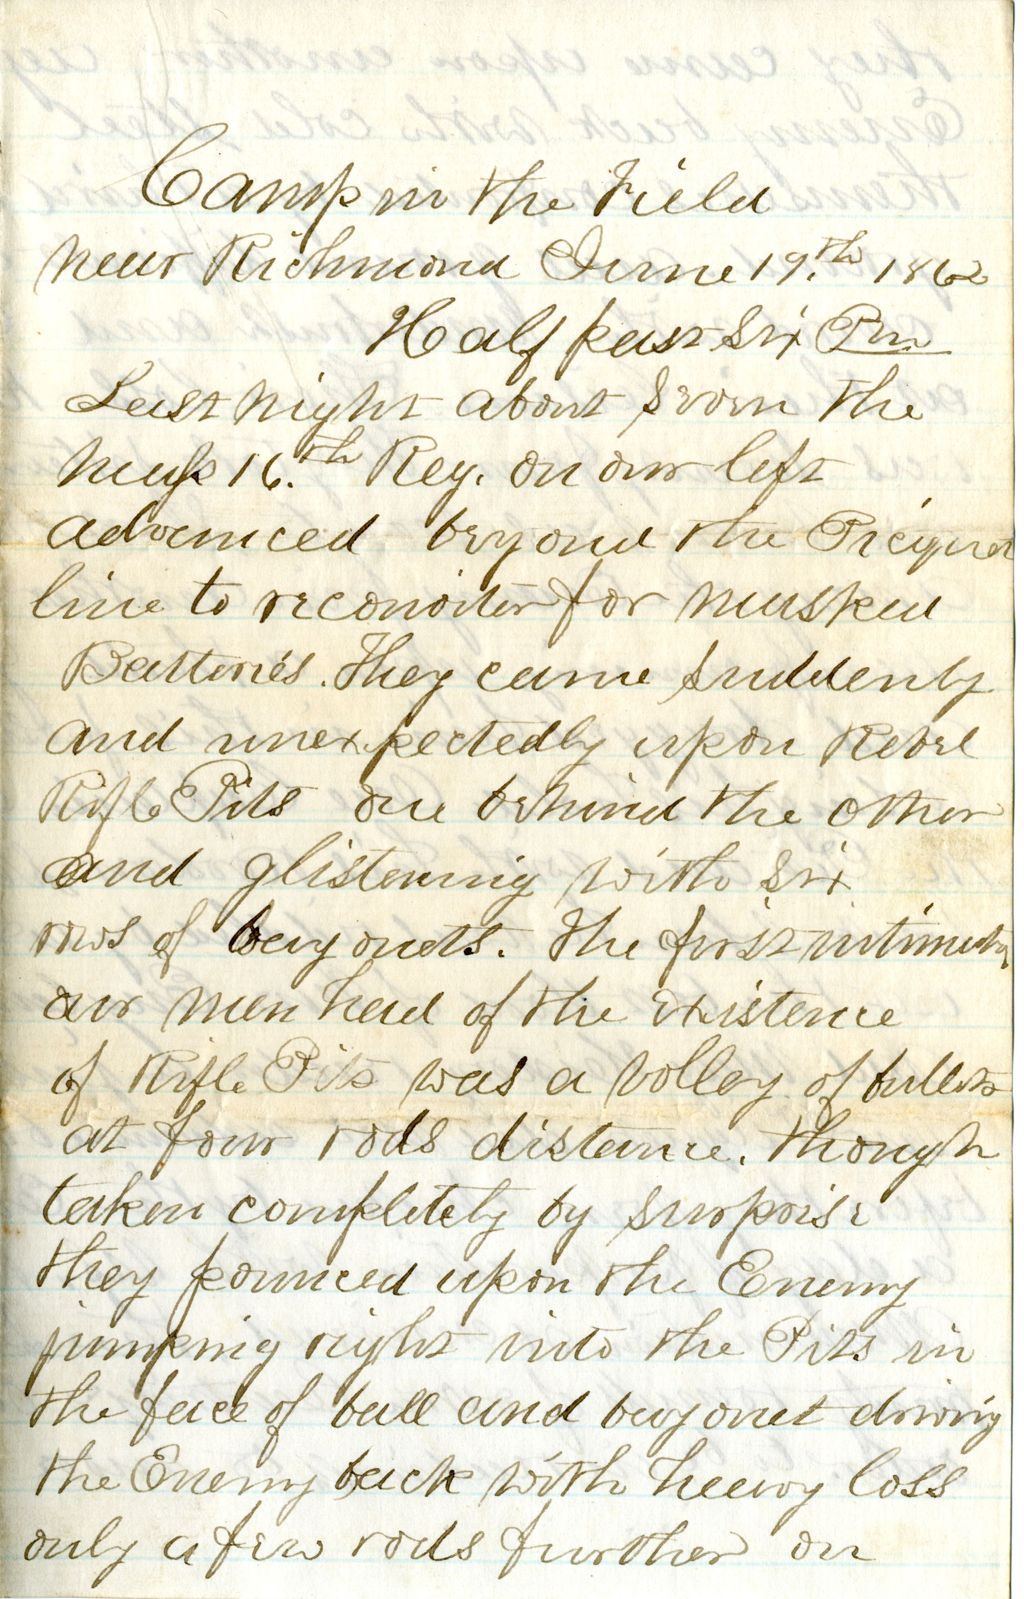 Camp in the Field
near Richmond June 19.th 1862
Half past six Pm
Last night about seven the
Mass 16.th Reg. on our left
advanced beyond the Picquet
line to reconoiter for masked
Batteries. They came suddenly
and unexpectedly upon Rebel
Rifle Pits one behind the other
and glistening with six
rows of bayonets. The first intimation
our men had of the existence
of Rifle Pits was a volley of bullets
at four rods distance. Though
taken completely by surprise
they pounced upon the Enemy
jumping right into the Pits in
the face of ball and bayonet driving
the Enemy back with heavy loss
only a few rods further on